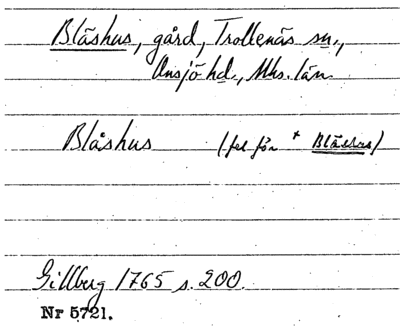 Bläshus, gård, Trollenäs sn.,
Onsjö hd., Mhs. län
Blåshus (fel för * Bläshus)
Gillberg 1765 s. 200.
Nr 5721.